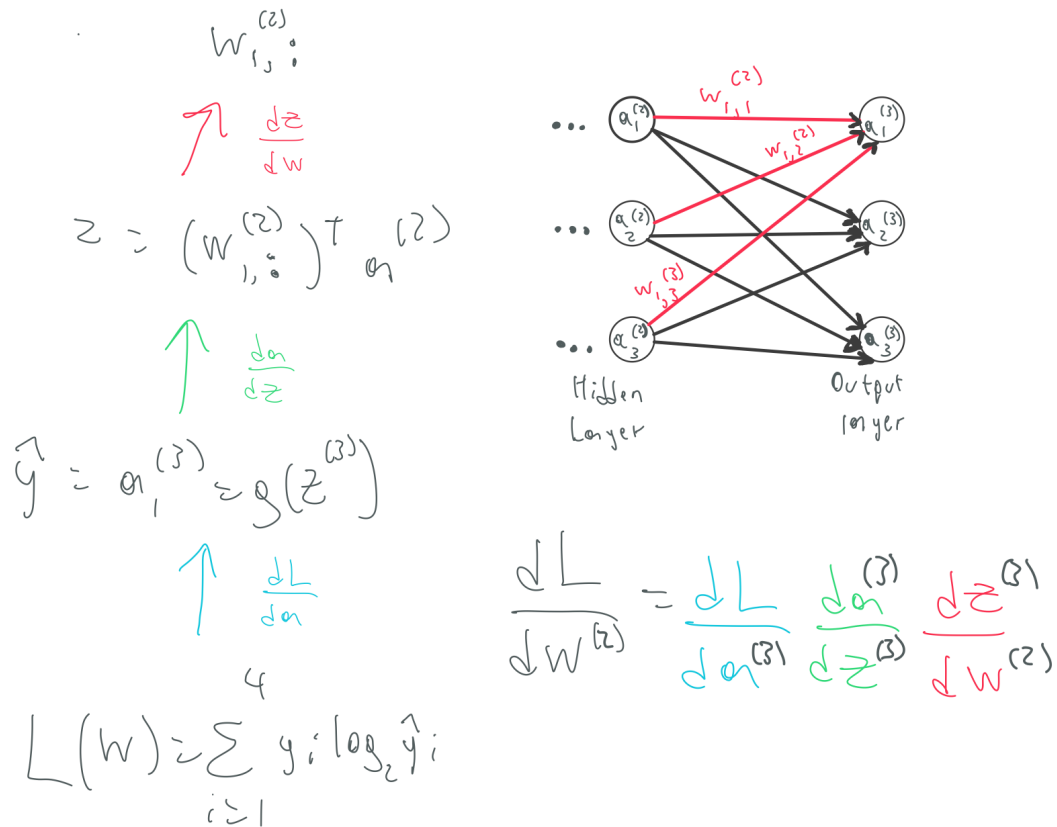 w₁,:⁽²⁾
dz/dw
z = (w₁,:⁽²⁾)ᵀ a⁽²⁾
da/dz
ŷ = a₁⁽³⁾ = g(z⁽³⁾)
dL/da
L(W) = Σᵢ₌₁⁴ yᵢ log₂ ŷᵢ
w₁,₁⁽²⁾
... a₁⁽²⁾ a₁⁽³⁾
w₁,₂⁽²⁾
... a₂⁽²⁾ a₂⁽³⁾
w₁,₃⁽³⁾
... a₃⁽²⁾ a₃⁽³⁾
Hidden Output
Layer layer
dL/dW⁽²⁾ = dL/da⁽³⁾ da⁽³⁾/dz⁽³⁾ dz⁽³⁾/dW⁽²⁾